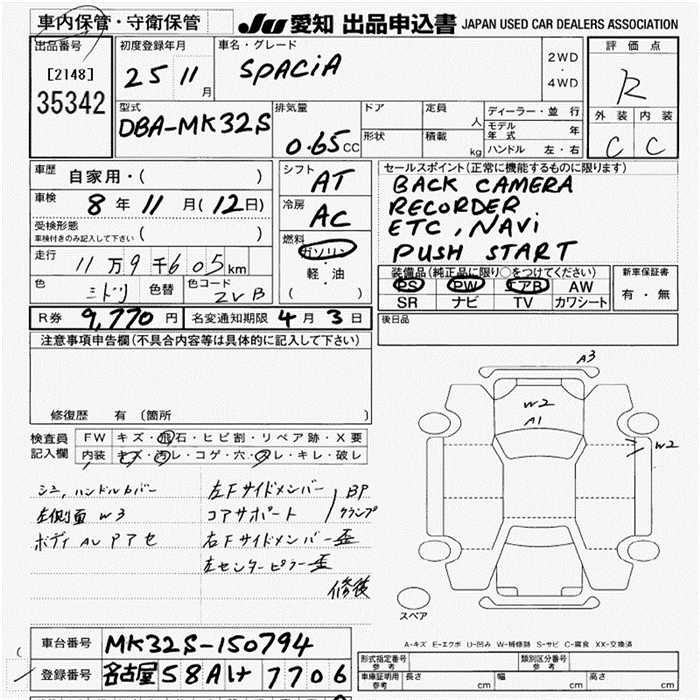 車内保管・守衛保管
JU 愛知 出品申込書 JAPAN USED CAR DEALERS ASSOCIATION
出品番号
[2148]
35342
初度登録年月
25 11月
車名・グレード
SPACiA
2WD
・
4WD
評価点
R
外装 内装
C C
型式
DBA-MK32S
排気量
0.65CC
ドア
形状
定員 人
積載 kg
ディーラー・並行
モデル年式 年
ハンドル 左・右
車歴 自家用・( )
車検 8年11月(12日)
受検形態
車検付きのみ記入して下さい ( )
走行 11万9千605km
色 ミドリ 色替 色コード ZVB
シフト AT
冷房 AC
燃料
ガソリン
・
軽・油
( )
セールスポイント(正常に機能するものに限ります)
BACK CAMERA
RECORDER
ETC, NAVi
PUSH START
装備品(純正品に限り○をつけてください)
PS PW エアB AW
SR ナビ TV カワシート
新車保証書
有・無
R券 9,770円 名変通知期限 4月3日
後日品
注意事項申告欄(不具合内容等は具体的に記入して下さい)
修復歴 有 (箇所 )
検査員記入欄
FW キズ・飛石・ヒビ割・リペア跡・X要
内装 キズ・汚レ・コゲ・穴・スレ・キレ・破レ
シミ,ハンドルカバー
左側面 W3
左Fサイドメンバー
コアサポート
BP
クランプ
右Fサイドメンバー歪
左センターピラー歪
修後
A3
W2
A1
W2
スペア
A-キズ E-エクボ U-凹み W-補修跡 S-サビ C-腐食 XX-交換済
車台番号 MK32S-150794
登録番号 名古屋 58A け 7706
形式指定番号
参考
類別区分番号
参考
車庫証明用
参考
長さ cm 幅 cm 高さ cm